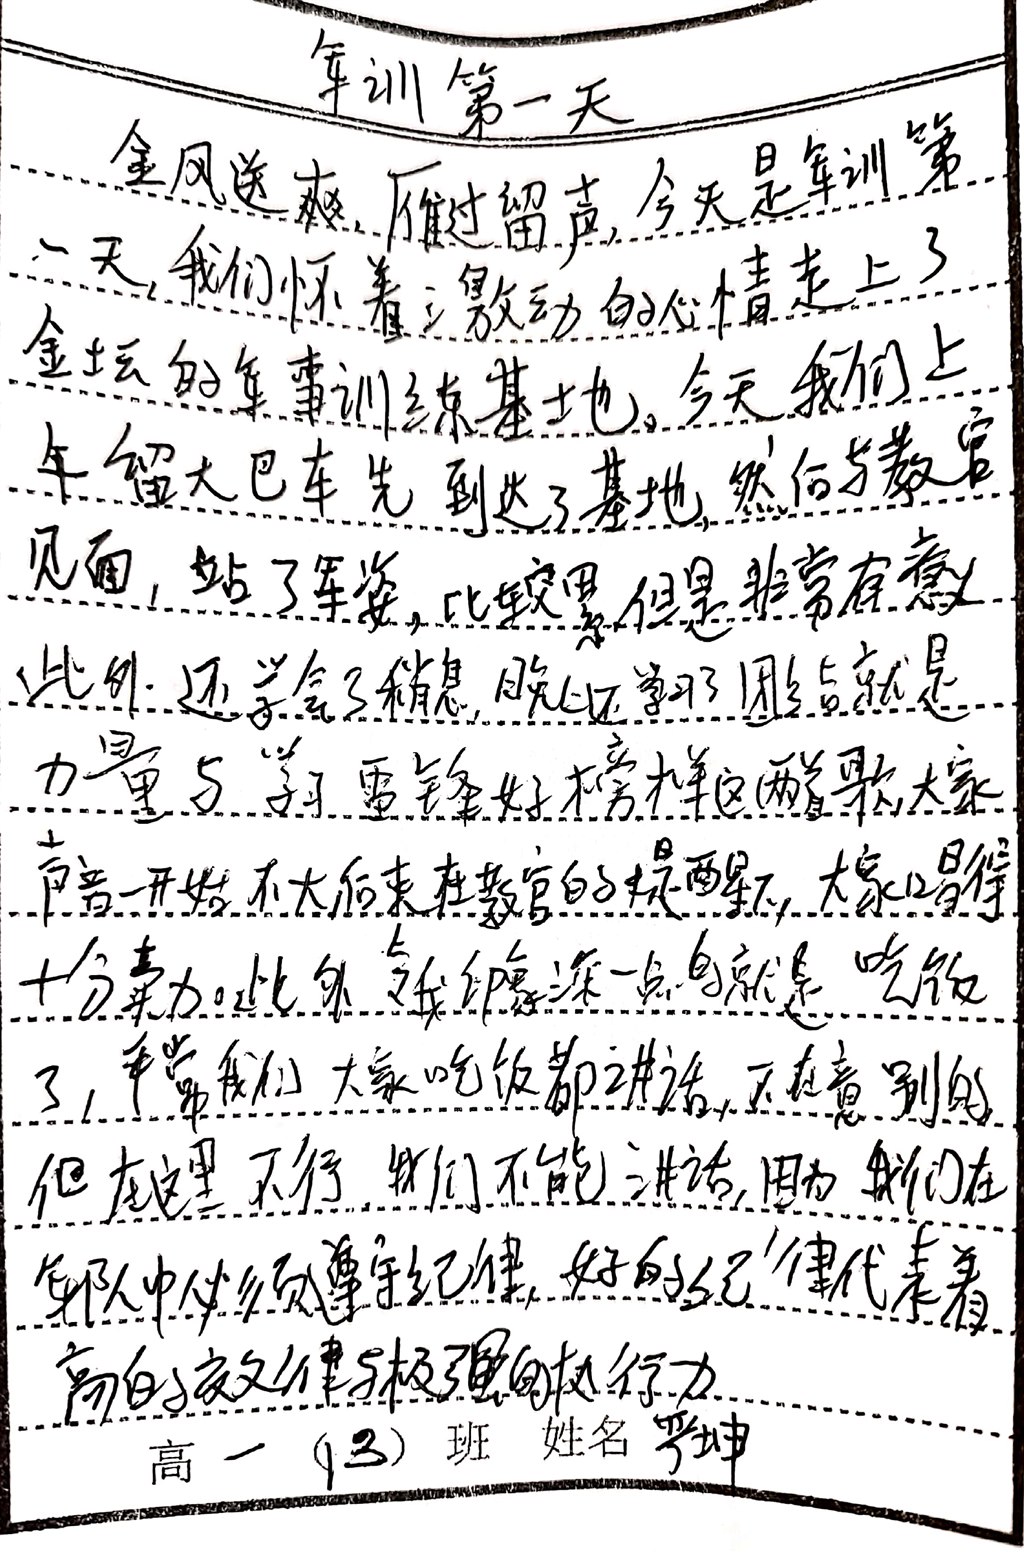 军训第一天
金风送爽,雁过留声,今天是军训第
一天,我们怀着激动的心情走上了
金坛的军事训练基地。今天我们上
午留大巴车先到达了基地,然后与教官
见面,站了军姿,比较累,但是非常有意义
此外.还学会了稍息,晚上还学习了团结就是
力量与学习雷锋好榜样这两首歌,大家
声音一开始不大后来在教官的提醒下,大家唱得
十分卖力。此外令我印象深一点的就是吃饭
了,平常我们大家吃饭都讲话,不在意别的,
但在这里不行,我们不能讲话,因为我们在
军队中必须遵守纪律,好的纪律代表着
高的效律与极强的执行力
高一(13)班 姓名 坤